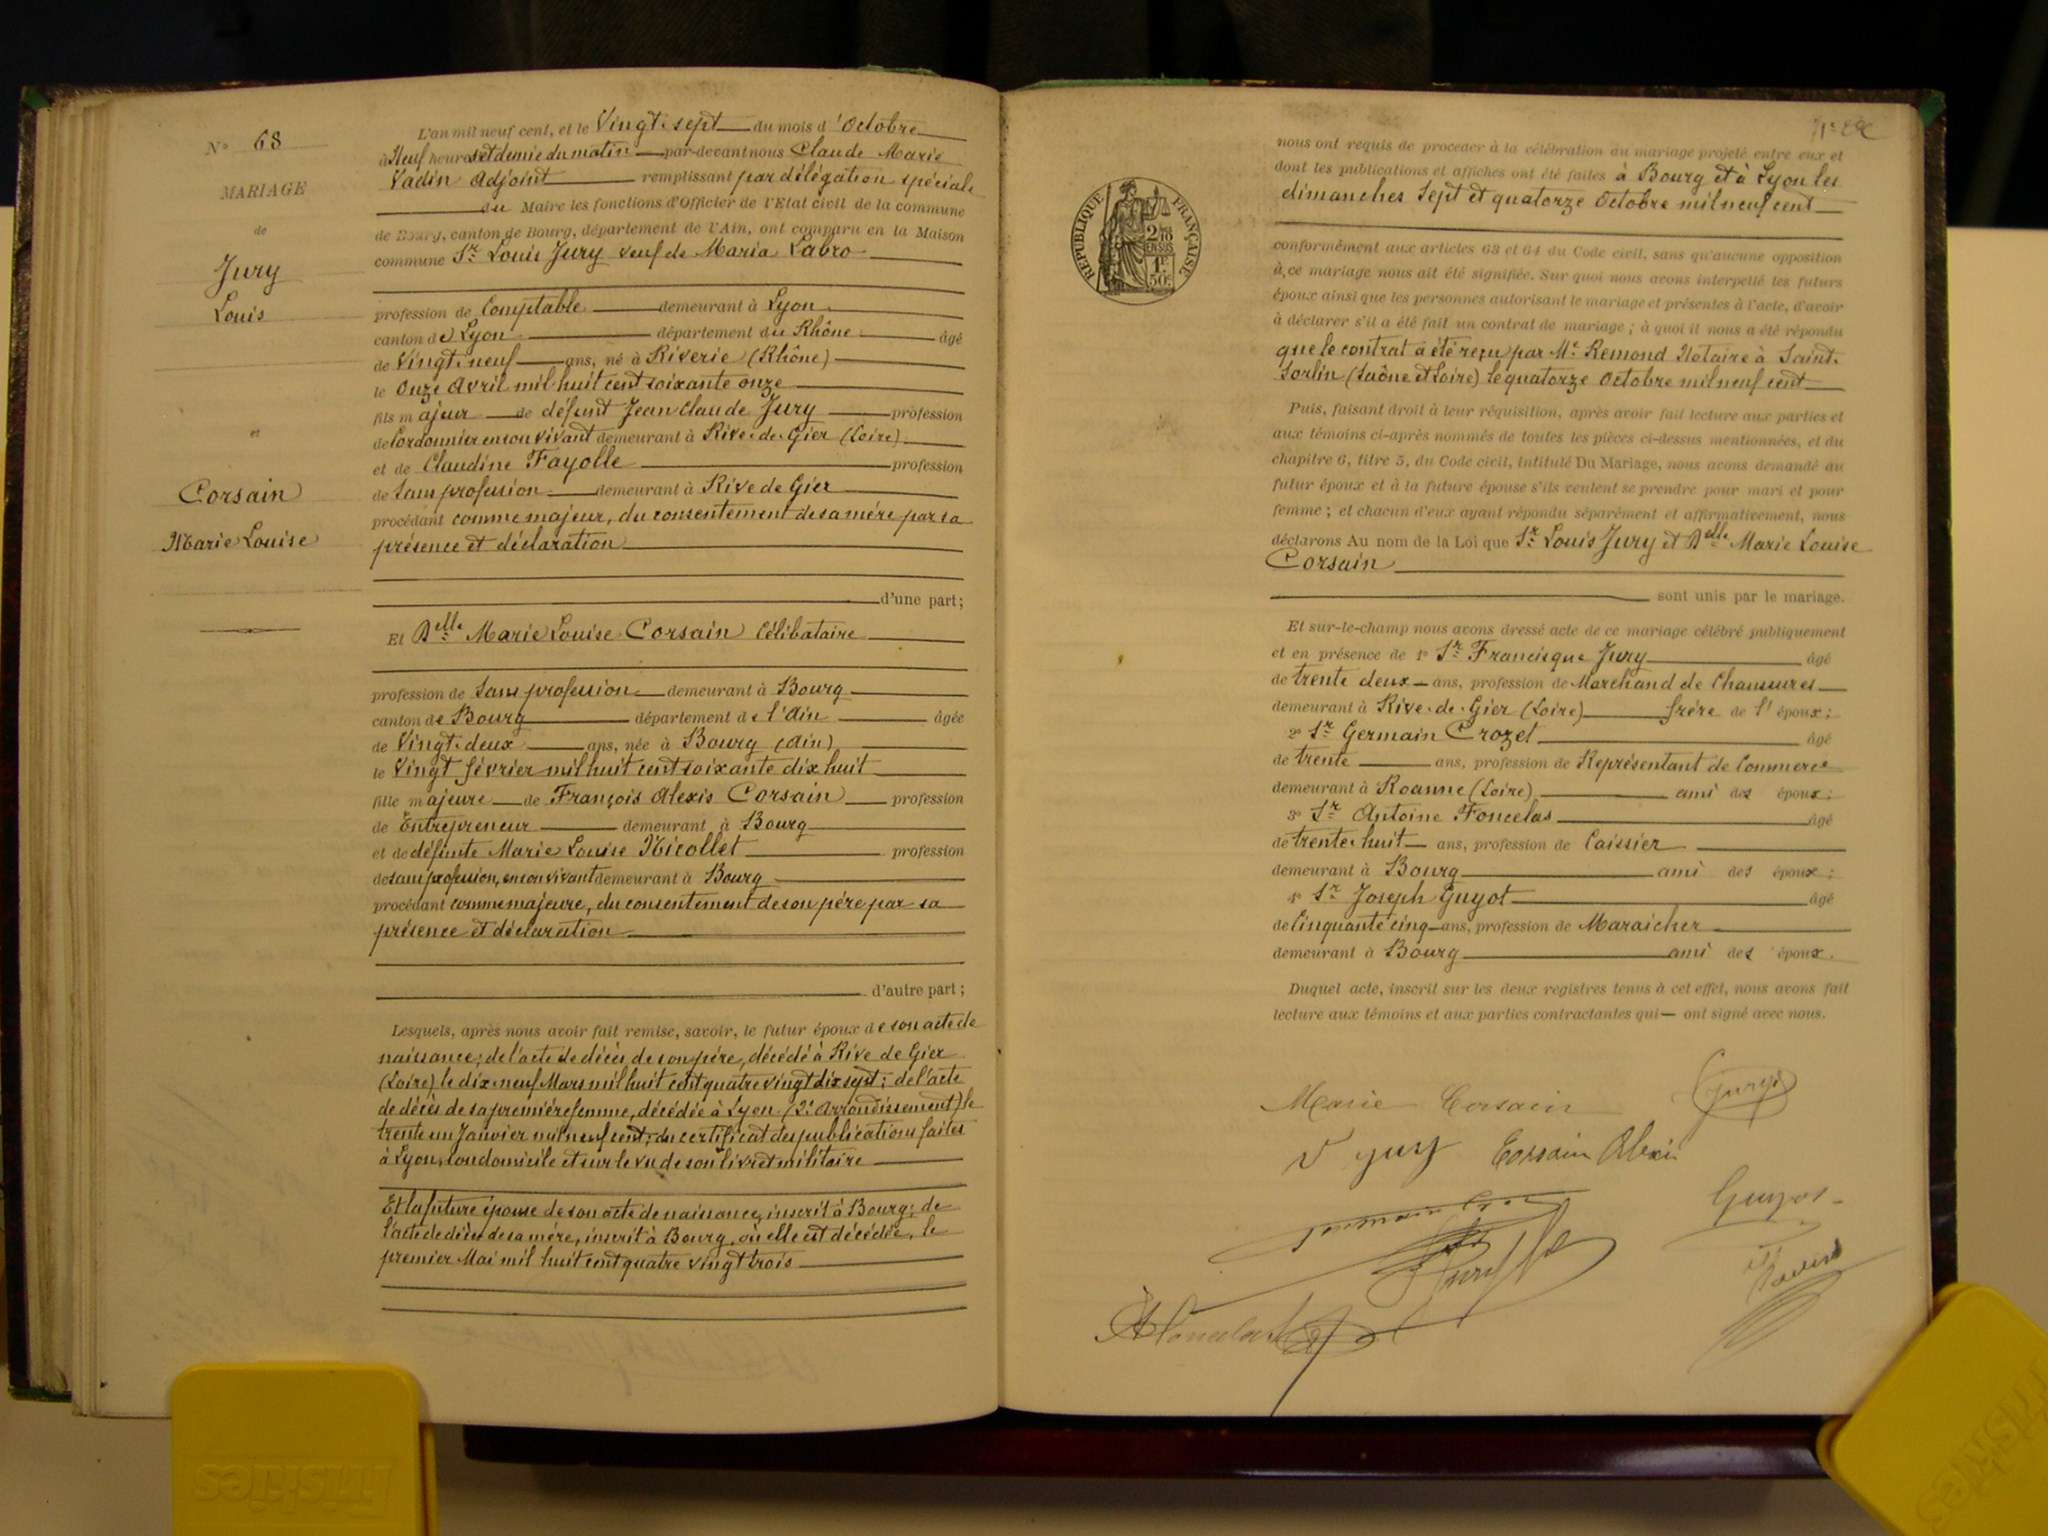 N° 68
MARIAGE
de
Jury
Louis
et
Corsain
Marie Louise
L'an mil neuf cent, et le Vingt-sept du mois d'Octobre
à Neuf heures et demie du matin par-devant nous Claude Marie
Vadin Adjoint remplissant par délégation spéciale
du Maire les fonctions d'Officier de l'Etat civil de la commune
de Bourg, canton de Bourg, département de l'Ain, ont comparu en la Maison
commune Sr Louis Jury veuf de Maria Labro
profession de Comptable demeurant à Lyon
canton de Lyon département du Rhône âgé
de Vingt-neuf ans, né à Riverie (Rhône)
le Onze Avril mil huit cent soixante onze
fils majeur de défunt Jean Claude Jury profession
de Cordonnier en son vivant demeurant à Rive-de-Gier (Loire)
et de Claudine Fayolle profession
de Sans profession demeurant à Rive de Gier
procédant comme majeur, du consentement de sa mère par sa
présence et déclaration
d'une part;
Et Delle Marie Louise Corsain Célibataire
profession de Sans profession demeurant à Bourg
canton de Bourg département de l'Ain âgée
de Vingt-deux ans, née à Bourg (Ain)
le Vingt février mil huit cent soixante dix huit
fille majeure de François Alexis Corsain profession
de Entrepreneur demeurant à Bourg
et de défunte Marie Louise Nicollet profession
de sans profession, en son vivant demeurant à Bourg
procédant comme majeure, du consentement de son père par sa
présence et déclaration
d'autre part;
Lesquels, après nous avoir fait remise, savoir, le futur époux de son acte de
naissance; de l'acte de décès de son père, décédé à Rive de Gier
(Loire) le dix-neuf Mars mil huit cent quatre vingt dix sept; de l'acte
de décès de sa première femme, décédée à Lyon (2e Arrondissement) le
trente un Janvier mil neuf cent; du certificat des publications faites
à Lyon, son domicile et sur le vu de son livret militaire
Et la future épouse de son acte de naissance, inscrit à Bourg; de
l'acte de décès de sa mère, inscrit à Bourg, où elle est décédée, le
premier Mai mil huit cent quatre vingt trois
REPUBLIQUE FRANÇAISE
2/10 EN SUS
1F 50c
nous ont requis de procéder à la célébration du mariage projeté entre eux et
dont les publications et affiches ont été faites à Bourg et à Lyon les
dimanches Sept et quatorze Octobre mil neuf cent
conformément aux articles 63 et 64 du Code civil, sans qu'aucune opposition
à ce mariage nous ait été signifiée. Sur quoi nous avons interpellé les futurs
époux ainsi que les personnes autorisant le mariage et présentes à l'acte, d'avoir
à déclarer s'il a été fait un contrat de mariage; à quoi il nous a été répondu
que le contrat a été reçu par Me Remond Notaire à Saint-
Sorlin (Saône et Loire) le quatorze Octobre mil neuf cent
Puis, faisant droit à leur réquisition, après avoir fait lecture aux parties et
aux témoins ci-après nommés de toutes les pièces ci-dessus mentionnées, et du
chapitre 6, titre 5, du Code civil, intitulé Du Mariage, nous avons demandé au
futur époux et à la future épouse s'ils veulent se prendre pour mari et pour
femme; et chacun d'eux ayant répondu séparément et affirmativement, nous
déclarons Au nom de la Loi que Sr Louis Jury et Delle Marie Louise
Corsain
sont unis par le mariage.
Et sur-le-champ nous avons dressé acte de ce mariage célébré publiquement
et en présence de 1° Sr Francisque Jury âgé
de trente deux ans, profession de Marchand de Chaussures
demeurant à Rive-de-Gier (Loire) frère de l'époux;
2° Sr Germain Crozet âgé
de trente ans, profession de Représentant de Commerce
demeurant à Roanne (Loire) ami des époux;
3° Sr Antoine Foncelas âgé
de trente-huit ans, profession de Caissier
demeurant à Bourg ami des époux;
4° Sr Joseph Guyot âgé
de Cinquante cinq ans, profession de Maraicher
demeurant à Bourg ami des époux.
Duquel acte, inscrit sur les deux registres tenus à cet effet, nous avons fait
lecture aux témoins et aux parties contractantes qui ont signé avec nous.
Marie Corsain Jury
Jury Corsain Alexis
Guyot
Jury
Vadin
A Foncelas
Triskies
Triskies